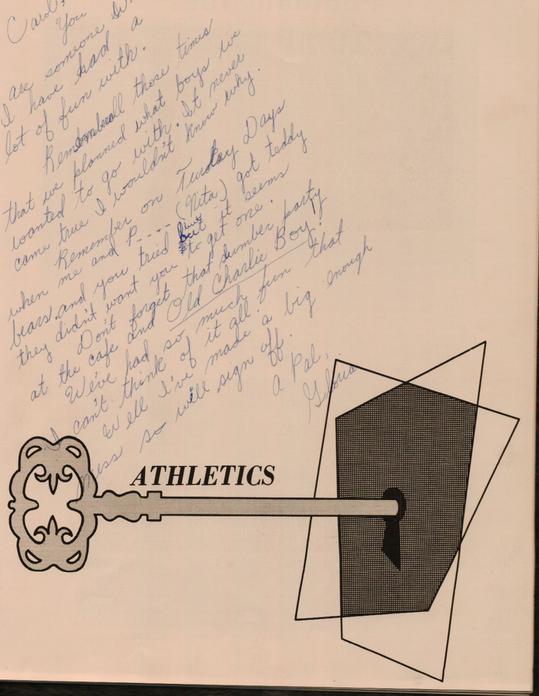 Carol,
You
are someone
I have had a
lot of fun with.
Remember all those times
that we planned what boys we
wanted to go with. It never
came true I wouldn't know why.
Remember on Turkey Days
when me and P---- (Nita) got teddy
bears and you tried but it seems
they didn't want you to get one.
Don't forget that slumber party
at the cafe and Old Charlie Boy!
We've had so much fun that
I can't think of it all.
Well I've made a big enough
mess so will sign off.
A Pal,
Gloria
ATHLETICS